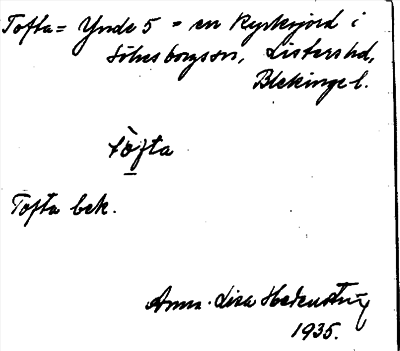 Tofta = Ynde 5 = en Kyrkojord i
Sölvesborgssn, Listers hd,
Blekinge l.
tòfta
Tofta bek.
Anna-Lisa Hedenström
1935.